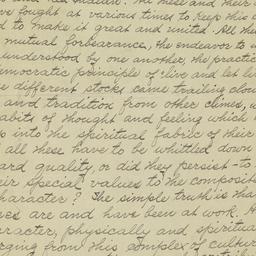 and the Indian. All these and their
ve fought at various times to keep this c
d to make it great and united. All the
mutual forbearance, the endeavor to u
understood by one another, the practic
emocratic principle of "live and let l
e different stocks came trailing clou
and tradition from other climes, w
abits of thought and feeling which
p into the spiritual fabric of their
all these have to be whittled down
ard quality, or did they persist - to
eir special values to the composit
character? The simple truth is tha
ces are and have been at work. H
aracter, physically and spiritua
erging from this complex of cultur